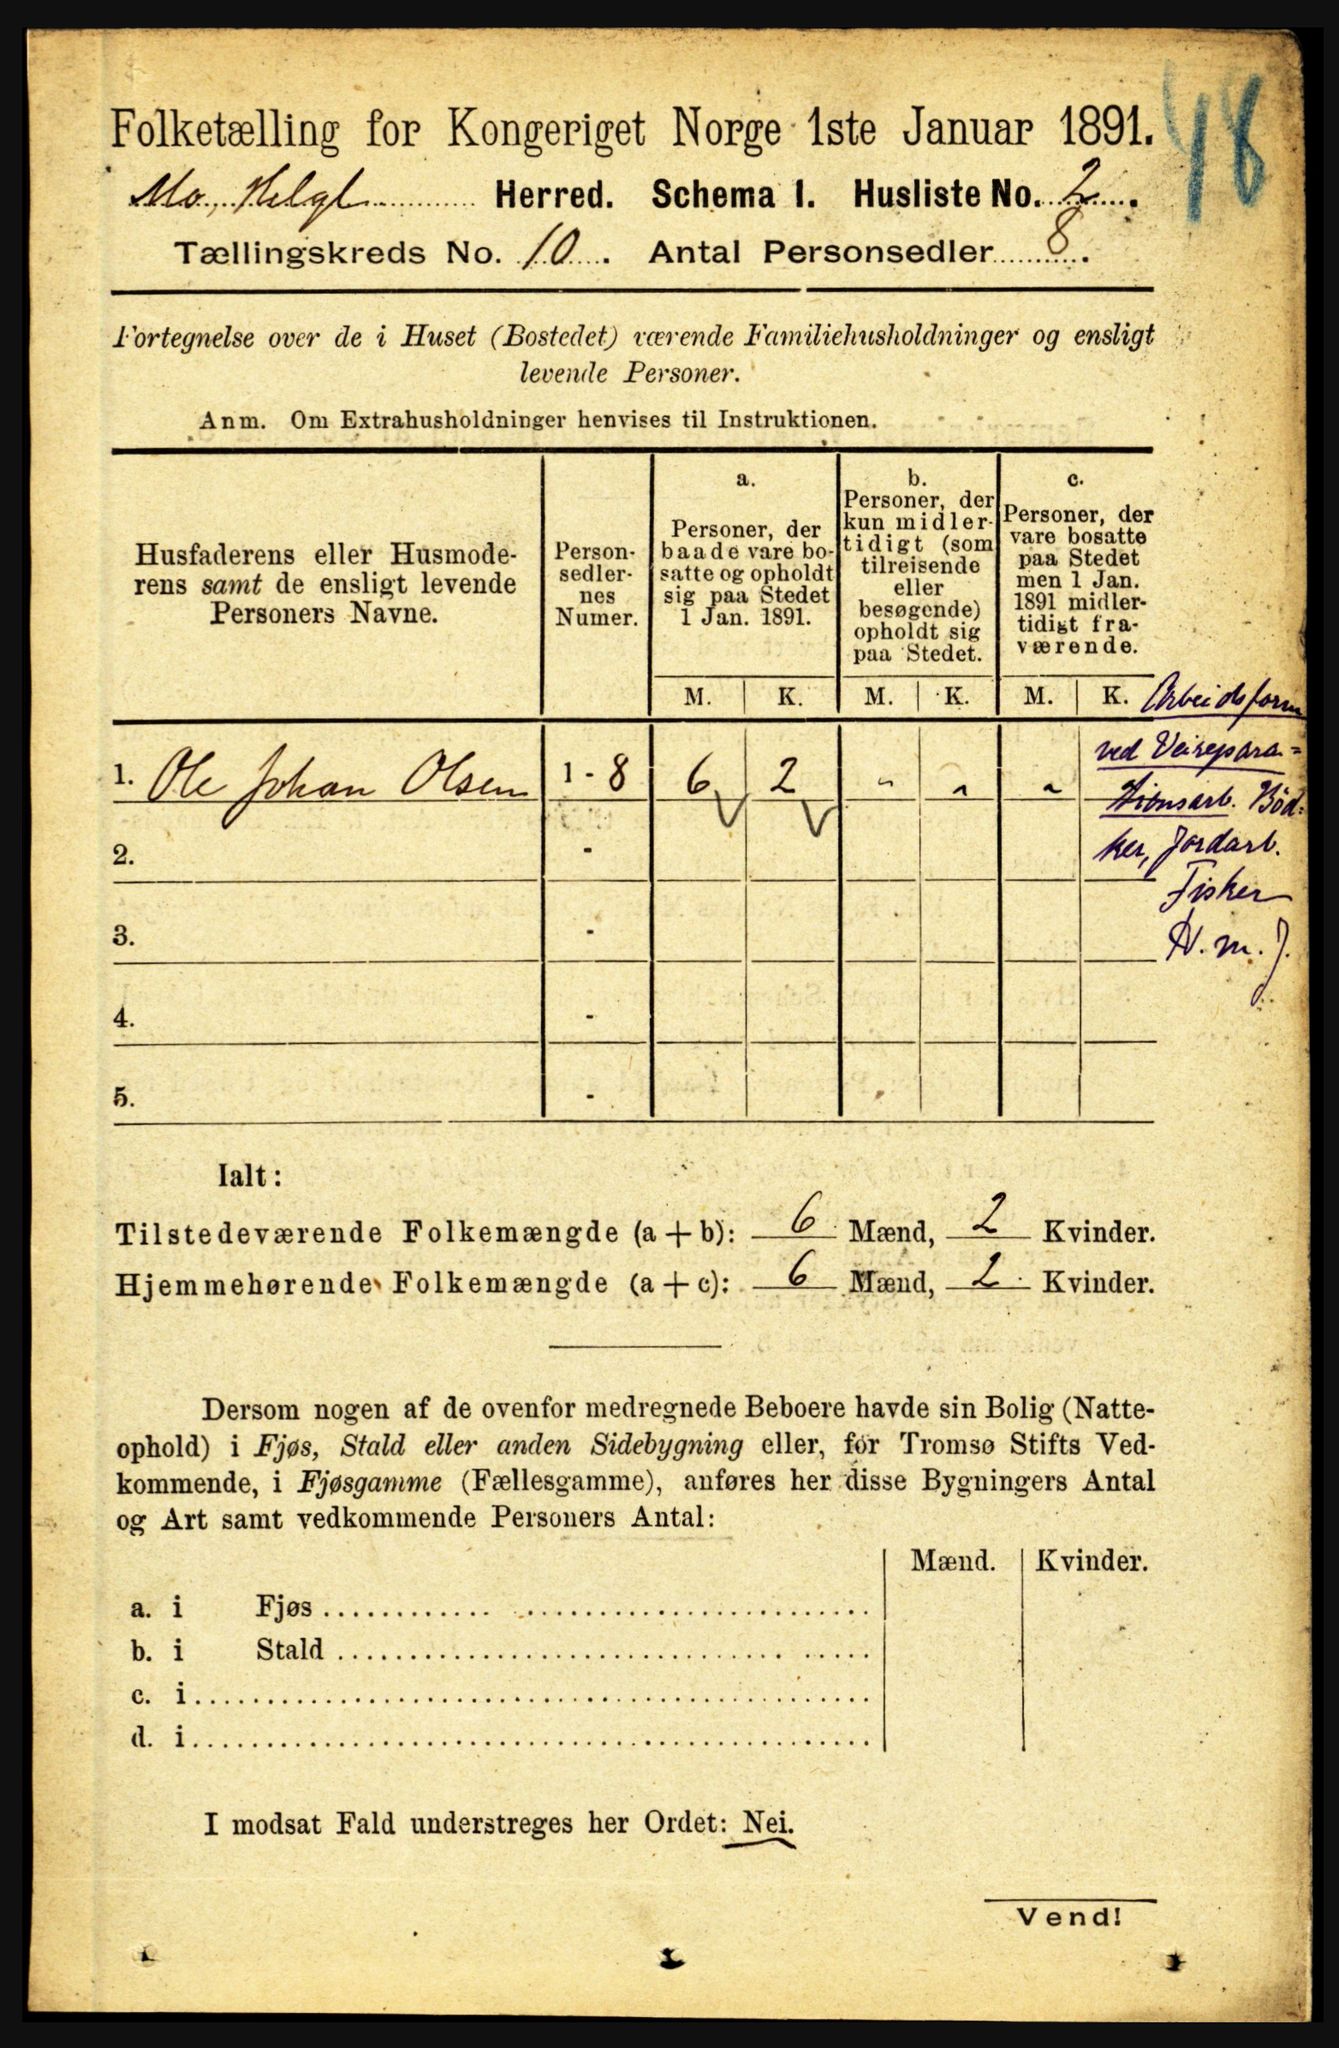 48
Folketælling for Kongeriget Norge 1ste Januar 1891.
Mo, Helgl Herred. Schema 1. Husliste No. 2.
Tællingskreds No. 10. Antal Personsedler 8.
Fortegnelse over de i Huset (Bostedet) værende Familiehusholdninger og ensligt
levende Personer.
Anm. Om Extrahusholdninger henvises til Instruktionen.
Husfaderens eller Husmode-
rens samt de ensligt levende
Personers Navne.
Person-
sedler-
nes
Numer.
a.
Personer, der
baade vare bo-
satte og opholdt
sig paa Stedet
1 Jan. 1891.
b.
Personer, der
kun midler-
tidigt (som
tilreisende
eller
besøgende)
opholdt sig
paa Stedet.
c.
Personer, der
vare bosatte
paa Stedet
men 1 Jan.
1891 midler-
tidigt fra-
værende.
M. K. M. K. M. K.
Arbeidsform
ved Veirepara=
tionsarb. Bød=
ker, Jordarb.
Fisker
H. m. J.
1. Ole Johan Olsen 1 - 8 6 2 " " "
2. -
3. -
4. -
5. -
Ialt:
Tilstedeværende Folkemængde (a + b): 6 Mænd, 2 Kvinder.
Hjemmehørende Folkemængde (a + c): 6 Mænd, 2 Kvinder.
Dersom nogen af de ovenfor medregnede Beboere havde sin Bolig (Natte-
ophold) i Fjøs, Stald eller anden Sidebygning eller, for Tromsø Stifts Ved-
kommende, i Fjøsgamme (Fællesgamme), anføres her disse Bygningers Antal
og Art samt vedkommende Personers Antal:
Mænd. Kvinder.
a. i Fjøs
b. i Stald
c. i
d. i
I modsat Fald understreges her Ordet: Nei.
Vend!